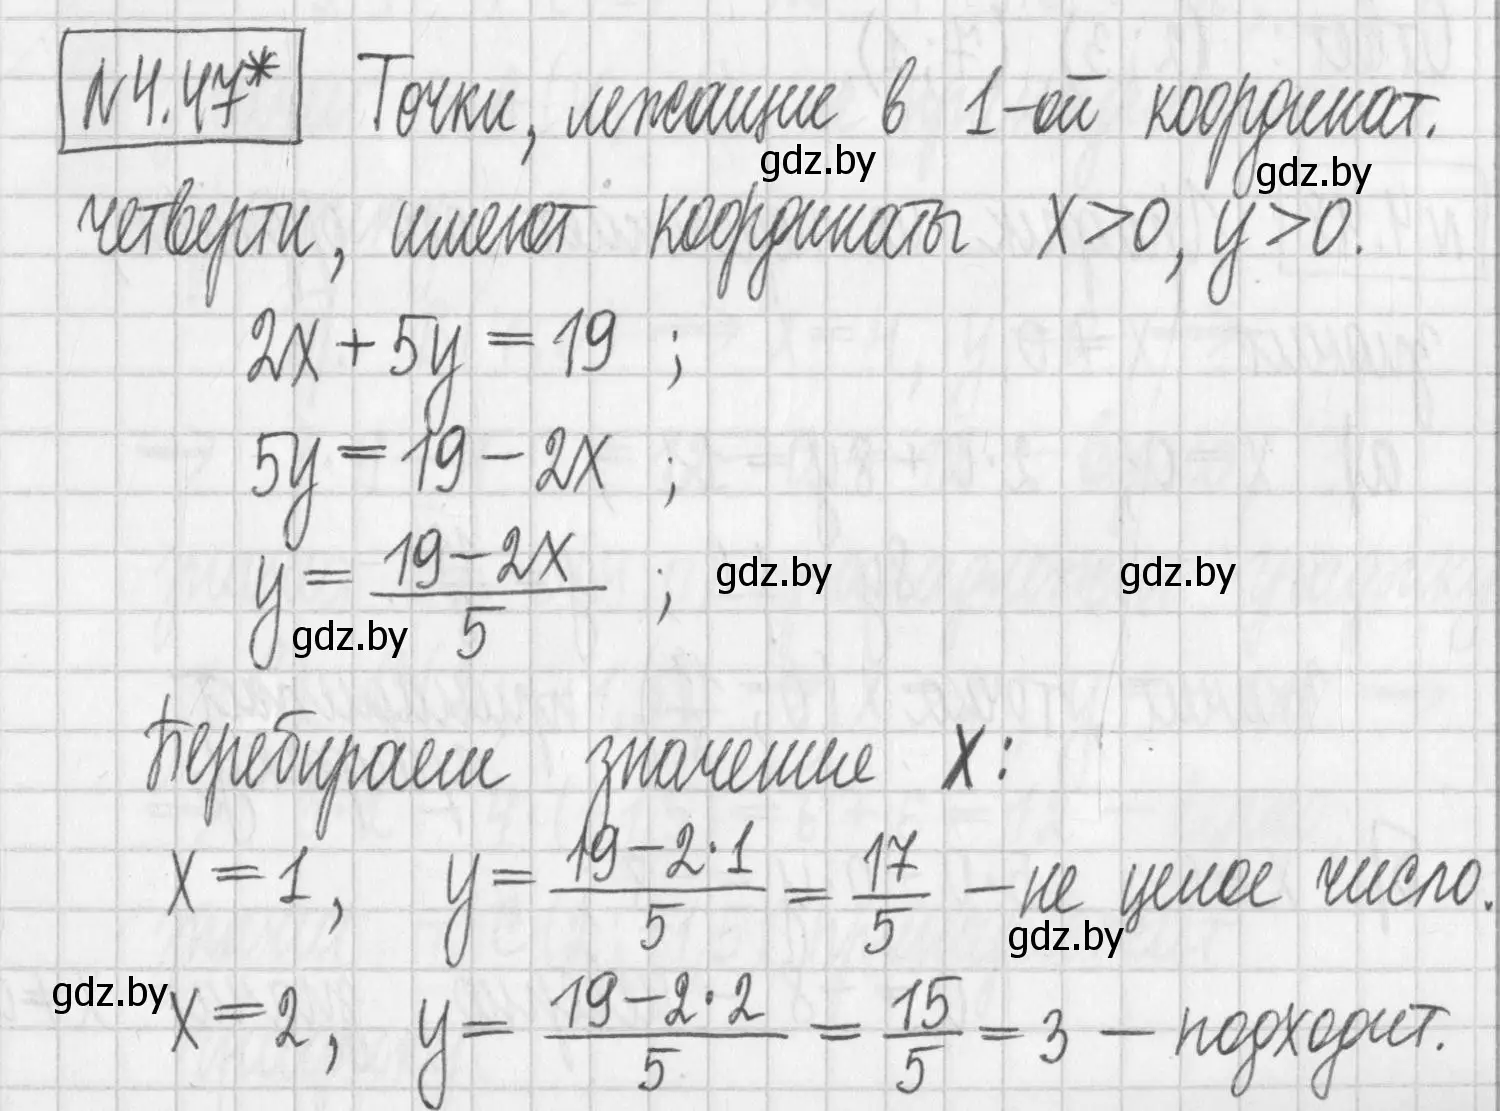 N4.47* Точки, лежащие в 1-ой координат.
gdz.by gdz.by
четверти, имеют координаты x>0, y>0.
2x + 5y = 19 ;
5y = 19 - 2x ;
y = (19 - 2x)/5 ;
gdz.by gdz.by
gdz.by
Перебираем значение x:
x = 1, y = (19 - 2·1)/5 = 17/5 — не целое число.
gdz.by
gdz.by
x = 2, y = (19 - 2·2)/5 = 15/5 = 3 — подходит.